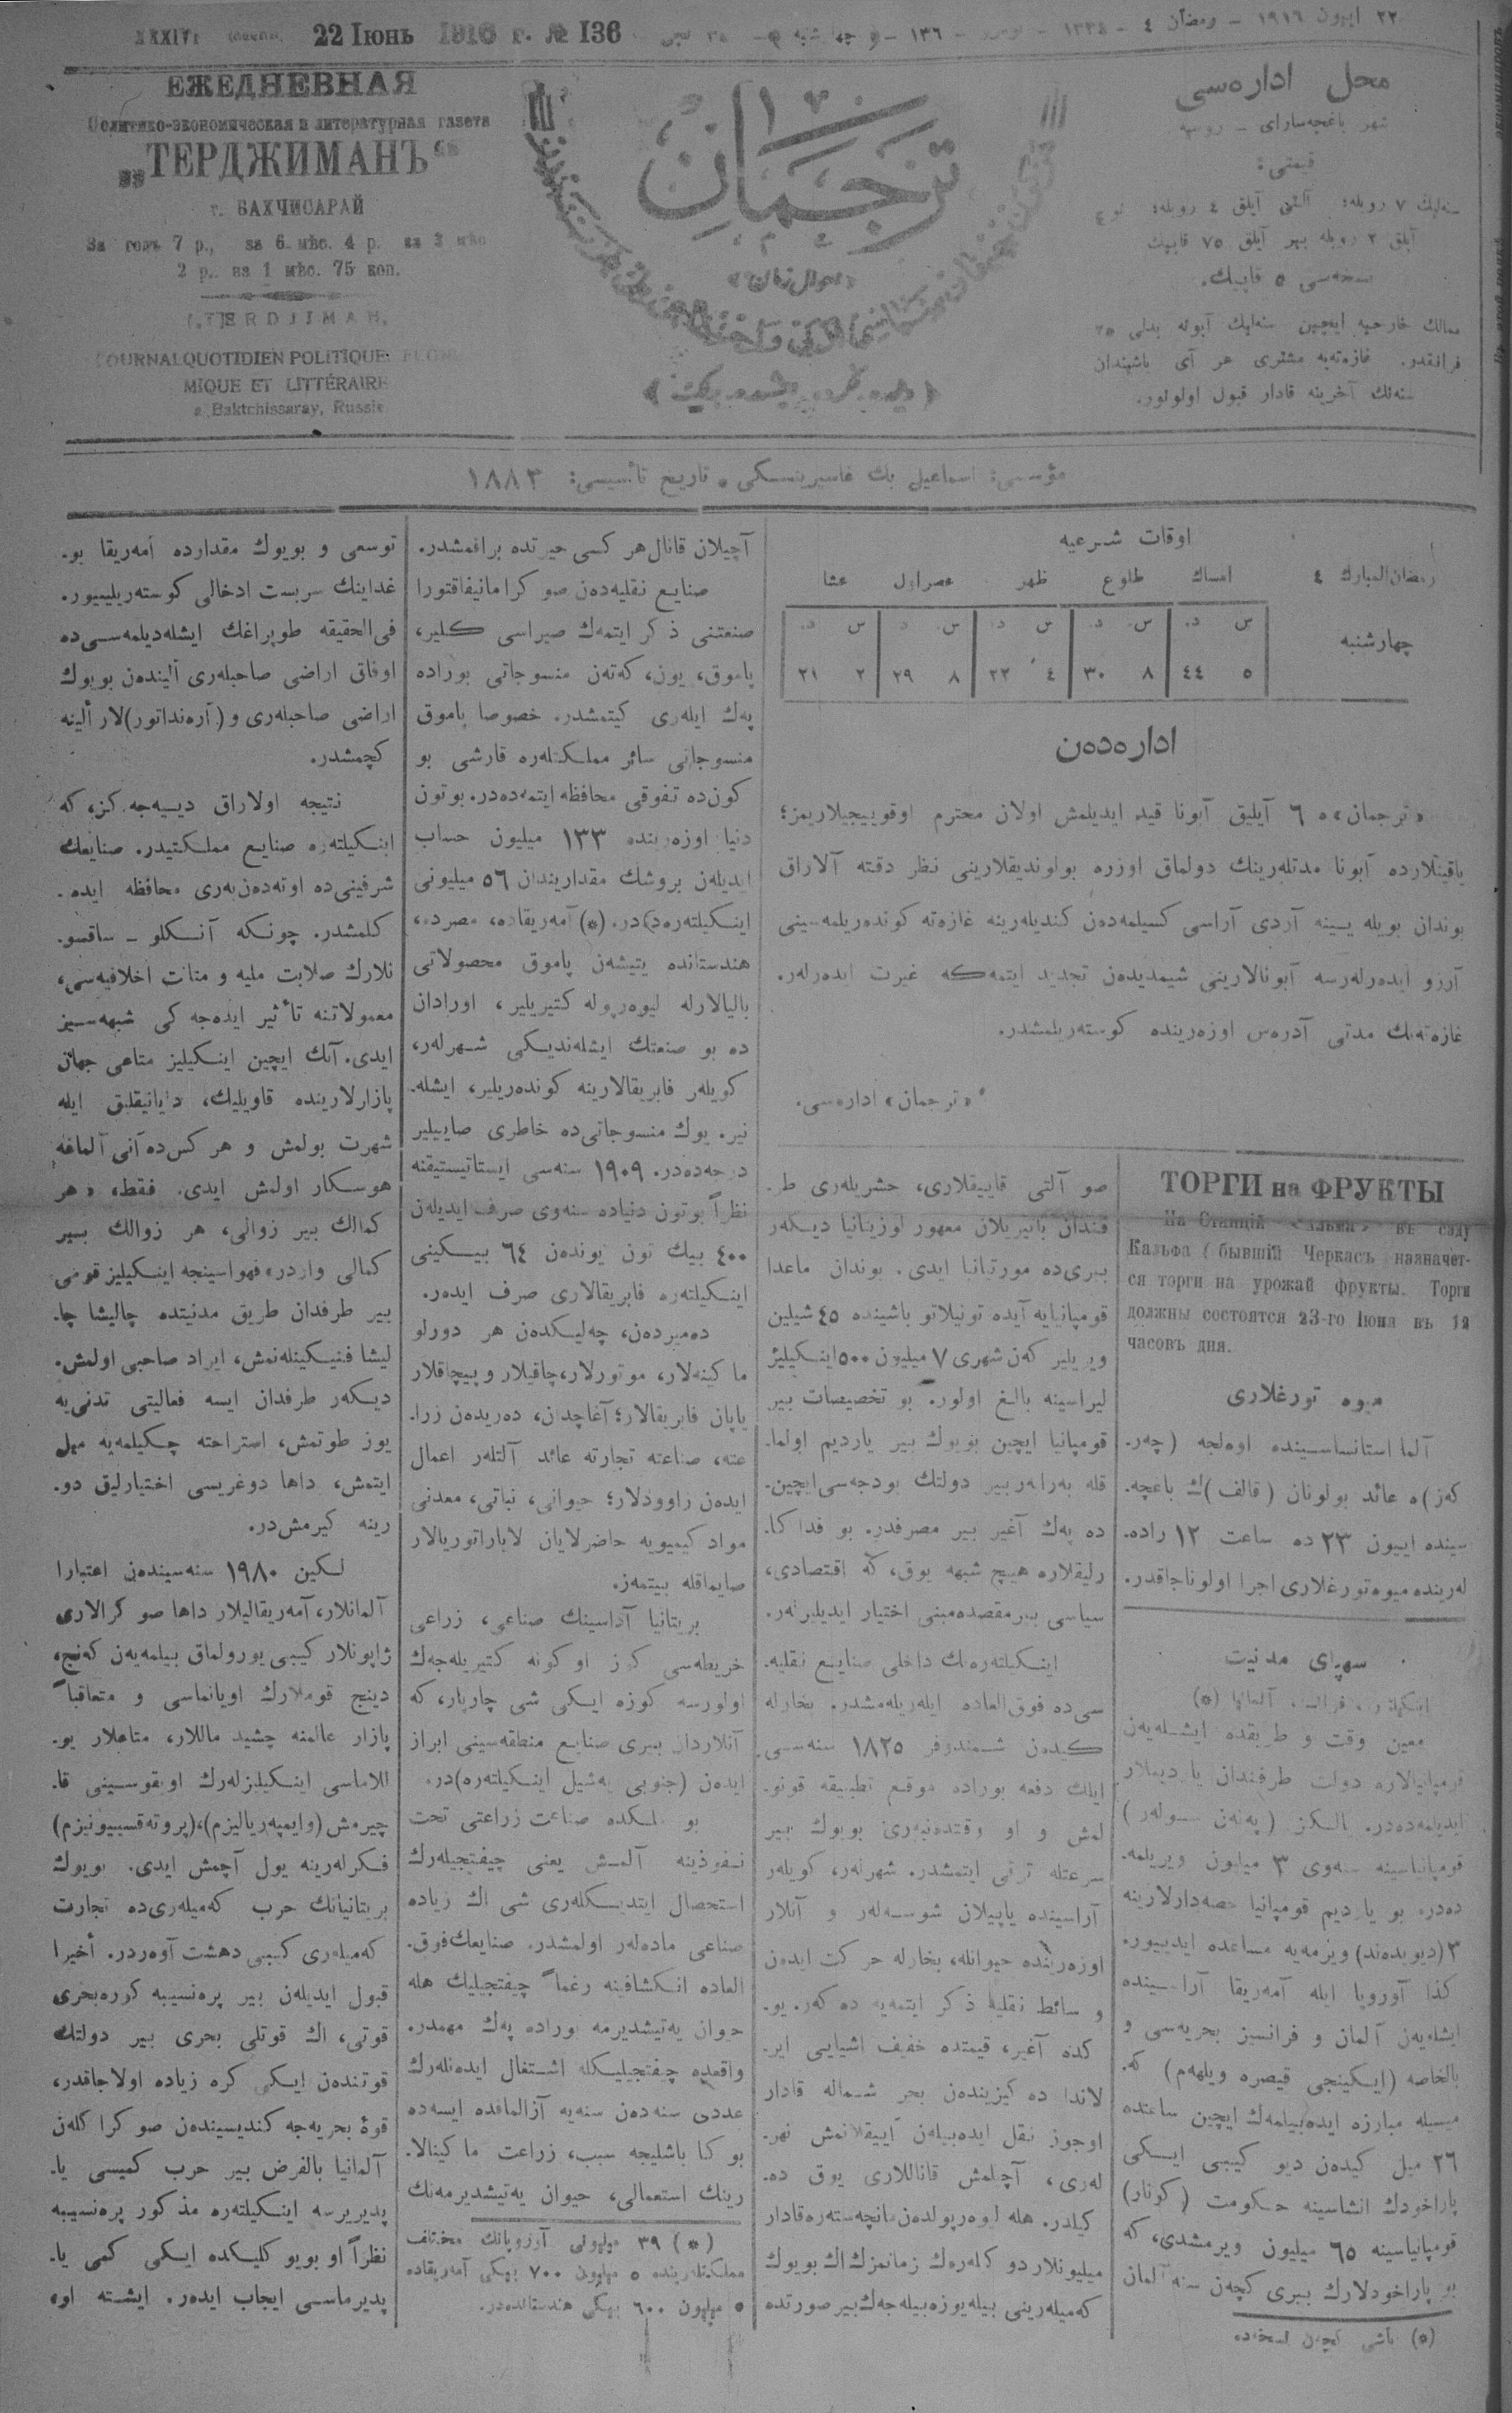 22 Іюнь 1916 г. № 136
٢٢ ایيون ١٩١٦ — رمضان ٤ — ١٣٣٤ — نومرو — ١٣٦
ЕЖЕДНЕВНАЯ
Политико-экономическая и литературная газета
„ТЕРДЖИМАНЪ“
г. БАХЧИСАРАЙ
За годъ 7 р., за 6 мѣс. 4 р. за 3 мѣс
2 р., за 1 мѣс. 75 коп.
JOURNAL QUOTIDIEN POLITIQUE
MIQUE ET LITTÉRAIRE
a Baktchissaray, Russie
ترجمان
محل اداره‌سی
شهر باغچه‌سارای — روسیه
قیمتی:
سنه‌لیك ٧ روبله؛ آلتی آیلق ٤ روبله؛
آیلق ٢ روبله بهر آیلق ٧٥ قاپیك
نسخه‌سی ٥ قاپیك.
ممالك خارجیه ایچین سنه‌لیك آبونه بدلی ٢٥
فرانقدر. غازه‌ته‌یه مشتری هر آی باشیندان
سنه‌نك آخرینه قادار قبول اولونور.
مؤسسی: اسماعیل بك غاسپرینسکی. تاریخ تأسیسی: ١٨٨٣
اوقات شرعیه
رمضان المبارك ٤ امساك طلوع ظهر عصر اول عشا
چهارشنبه
س د. س. د. س د. س. د س د.
٥ ٤٤ ٨ ٣٠ ٤ ٢٢ ٨ ٢٩ ٢ ٢١
اداره‌ده‌ن
«ترجمان»ه ٦ آیلیق آبونا قید ایدیلمش اولان محترم اوقوییجیلاریمز؛
یاقینلارده آبونا مدتله‌رینك دولماق اوزره بولوندیقلارینی نظر دقته آلاراق
بوندان بویله یینه آردی آراسی کسیلمه‌ده‌ن کندیله‌رینه غازه‌ته کونده‌ریلمه‌سینی
آرزو ایده‌رله‌رسه آبونالارینی شیمدیده‌ن تجدید ایتمه‌که غیرت ایده‌رله‌ر.
غازه‌ته‌نك مدتی آدره‌س اوزه‌رینده کوسته‌ریلمشدر.
«ترجمان» اداره‌سی.
ТОРГИ на ФРУКТЫ
На Станціи «Альма» въ саду
Кальфа (бывшій Черкасъ назначет-
ся торги на урожай фрукты. Торги
должны состоятся 23-го Іюня въ 12
часовъ дня.
میوه تورغلاری
آلما استانساسینده اوه‌لجه (چه‌ر-
که‌ز)ه عائد بولونان (قالف)ك باغچه-
سینده ایيون ٢٣ ده ساعت ١٢ راده-
له‌رینده میوه تورغلاری اجرا اولوناجاقدر.
سهپای مدنیت
انکلتره، فرانسا، آلمانیا (*)
معین وقت و طریقده ایشله‌یه‌ن
قومپانیالاره دولت طرفندان یاردیملار
ایدیلمه‌ده‌در. یالکز (په‌نه‌ن سوله‌ر)
قومپانیاسینه سنه‌وی ٣ میلیون ویریلمه-
ده‌در. بو یاردیم قومپانیا حصه‌دارلارینه
٣ (دیویده‌ند) ویرمه‌یه مساعده ایدییور.
کذا آوروپا ایله آمه‌ریقا آراسینده
ایشله‌یه‌ن آلمان و فرانسیز بحریه‌سی و
بالخاصه (ایکینجی قیصره ویلهه‌م) که.
میسیله مبارزه ایده‌بیلمه‌ك ایچین ساعتده
٢٦ میل کیده‌ن دیو کیبی ایکی
پاراخودك انشاسینه حکومت (کونار)
قومپانیاسینه ٦٥ میلیون ویرمشدی، که
بو پاراخودلارك بیری کچه‌ن سنه آلمان
(*) باشی کچه‌ن نسخه‌ده
صو آلتی قاییقلاری، حشریله‌ری طر-
فندان باتیریلان معهور لوزیتانیا دیکه‌ر
بیری‌ده مورتیانیا ایدی. بوندان ماعدا
قومپانیایه آیده تونیلاتو باشینده ٤٥ شیلین
ویریلیر که‌ن شهری ٧ میلیون ٥٠٠ اینکیلیز
لیراسینه بالغ اولور. بو تخصیصات بیر
قومپانیا ایچین بویوك بیر یاردیم اولما-
قله به‌رابه‌ر بیر دولتك بودجه‌سی ایچین-
ده په‌ك آغیر بیر مصرفدر. بو فداکا-
رلیقلاره هییچ شبهه یوق، که اقتصادی،
سیاسی بیر مقصده مبنی اختیار ایدیلیرله‌ر.
اینکیلته‌ره‌نك داخلی صنایع نقلیه-
سی‌ده فوق‌العاده ایله‌ریله‌مشدر. بخارله
کیده‌ن شمندوفر ١٨٢٥ سنه‌سی
ایلك دفعه بوراده موقع تطبیقه قونو-
لمش و او وقتده‌نبه‌ری بویوك بیر
سرعتله ترقی ایتمشدر. شهرله‌ر، کویله‌ر
آراسینده یاپیلان شوسه‌له‌ر و آنلار
اوزه‌رینده حیوانله، بخارله حرکت ایده‌ن
وسائط نقلیه ذکر ایتمه‌یه ده‌که‌ر. یو-
کده آغیر، قیمتده خفیف اشیایی ایر-
لاندا ده‌کیزینده‌ن بحر شماله قادار
اوجوز نقل ایده‌بیله‌ن آییقلانمش نهر-
له‌ری، آچلمش قاناللاری یوق ده-
کیلدر. هله لیوه‌رپولده‌ن مانچه‌سته‌ره قادار
میلیونلار دو کله‌ره‌ك زمانمزك اك بویوك
که‌میله‌رینی بیله یوزه‌بیله‌جه‌ك بیر صورتده
آچیلان قانال هر کسی حیرتده براقمشدر.
صنایع نقلیه‌ده‌ن صو کرا مانیفاقتورا
صنعتنی ذکر ایتمه‌ك صیراسی کلیر،
پاموق، یون، که‌ته‌ن منسوجاتی بوراده
په‌ك ایله‌ری کیتمشدر. خصوصا پاموق
منسوجاتی سائر مملکتله‌ره قارشی بو
کون‌ده تفوقی محافظه ایتمه‌ده‌در. بوتون
دنیا اوزه‌رینده ١٣٣ میلیون حساب
ایدیله‌ن بروشك مقداریندان ٥٦ میلیونی
اینکیلته‌ره‌ده‌در. (*) آمه‌ریقاده، مصرده،
هندستانده یتیشه‌ن پاموق محصولاتی
بالیالارله لیوه‌رپوله کتیریلیر، اورادان
ده بو صنعتك ایشله‌ندیکی شهرله‌ر،
کویله‌ر فابریقالارینه کونده‌ریلیر، ایشله-
نیر. یوك منسوجاتی‌ده خاطری صاییلیر
درجه‌ده‌در. ١٩٠٩ سنه‌سی ایستاتیستیقنه
نظراً بوتون دنیاده سنه‌وی صرف ایدیله‌ن
٤٠٠ بیك تون یونده‌ن ٦٤ بیکینی
اینکیلته‌ره فابریقالاری صرف ایده‌ر.
ده‌میرده‌ن، چه‌لیکده‌ن هر دورلو
ماکینه‌لار، موتورلار، چاقیلار و پیچاقلار
یاپان فابریقالار؛ آغاچدان، ده‌ریده‌ن زرا-
عته، صناعته تجارته عائد آلتله‌ر اعمال
ایده‌ن زاوودلار؛ حیوانی، نباتی، معدنی
مواد کیمیویه حاضرلایان لاباراتوریالار
صایماقله بیتمه‌ز.
بریتانیا آداسینك صناعی، زراعی
خریطه‌سی کوز اوکونه کتیریله‌جه‌ك
اولورسه کوزه ایکی شی چارپار، که
آنلاردان بیری صنایع منطقه‌سینی ابراز
ایده‌ن (جنوبی یه‌شیل اینکیلته‌ره)در.
بو ملکده صناعت زراعتی تحت
نفوذینه آلمش یعنی چیفتجیله‌رك
استحصال ایتدیکله‌ری شی اك زیاده
صناعی ماده‌له‌ر اولمشدر. صنایعك فوق-
العاده انکشافینه رغماً چیفتجیلیك هله
حیوان یه‌تیشدیرمه بوراده په‌ك مهمدر.
واقعده چفتجیلیکله اشتغال ایده‌نله‌رك
عددی سنه‌ده‌ن سنه‌یه آزالماقده ایسه‌ده
بوکا باشلیجه سبب، زراعت ماکینالا-
رینك استعمالی، حیوان یه‌تیشدیرمه‌نك
(*) ٣٩ میلیونی آوروپانك مختلف
مملکتله‌رینده ٥ میلیون ٧٠٠ بیکی آمه‌ریقاده
٥ میلیون ٦٠٠ بیکی هندستانده‌در.
توسعی و بویوك مقدارده آمه‌ریقا بو-
غداینك سربست ادخالی کوسته‌ریلییور.
فی‌الحقیقه طوپراغك ایشله‌دیلمه‌سی‌ده
اوفاق اراضی صاحبله‌ری آلینده‌ن بویوك
اراضی صاحبله‌ری و (آره‌نداتور)لار ألینه
کچمشدر.
نتیجه اولاراق دییه‌جه‌کز، که
اینکیلته‌ره صنایع مملکتیدر. صنایعك
شرفینی‌ده اوته‌ده‌ن‌به‌ری محافظه ایده-
کلمشدر. چونکه آنکلو — ساقسو-
نلارك صلابت ملیه و متانت اخلاقیه‌سی،
معمولاتنه تأثیر ایده‌جه‌کی شبهه‌سیز
ایدی. آنك ایچین اینکیلیز متاعی جهان
پازارلارینده قاویلیك، دایانیقلیق ایله
شهرت بولمش و هر کس‌ده آنی آلماغه
هوسکار اولمش ایدی. فقط، «هر
کمالك بیر زوالی، هر زوالك بیر
کمالی واردر» فهواسینجه اینکیلیز قومی
بیر طرفدان طریق مدنیتده چالیشا چا-
لیشا فنیکینله‌نمش، ایراد صاحبی اولمش.
دیکه‌ر طرفدان ایسه فعالیتی تدنی‌یه
یوز طوتمش، استراحته چکیلمه‌یه میل
ایتمش، داها دوغریسی اختیارلیق دو-
رینه کیرمش‌در.
لکین ١٩٨٠ سنه‌سینده‌ن اعتبارا
آلمانلار، آمه‌ریقالیلار داها صو کرالاری
ژاپونلار کیبی یورولماق بیلمه‌یه‌ن که‌نج،
دینج قوملارك اویانماسی و متعاقباً
پازار عالمنه چشید ماللار، متاعلار یو-
للاماسی اینکیلیزله‌رك اویقوسینی قا-
چیرمش (وایمپه‌ریالیزم)، (پروته‌قسییونیزم)
فکرله‌رینه یول آچمش ایدی. بویوك
بریتانیانك حرب که‌میله‌ری‌ده تجارت
که‌میله‌ری کیبی دهشت آوه‌ردر. أخیرا
قبول ایدیله‌ن بیر پره‌نسیپه کوره بحری
قوتی، اك قوتلی بحری بیر دولتك
قوتنده‌ن ایکی کره زیاده اولاجاقدر،
قوهٔ بحریه‌جه کندیسینده‌ن صو کرا کله‌ن
آلمانیا بالفرض بیر حرب کمیسی یا-
پدیریرسه اینکیلته‌ره مذکور پره‌نسیپه
نظراً او بویو کلیکده ایکی کمی یا-
پدیرماسی ایجاب ایده‌ر. ایشته او،